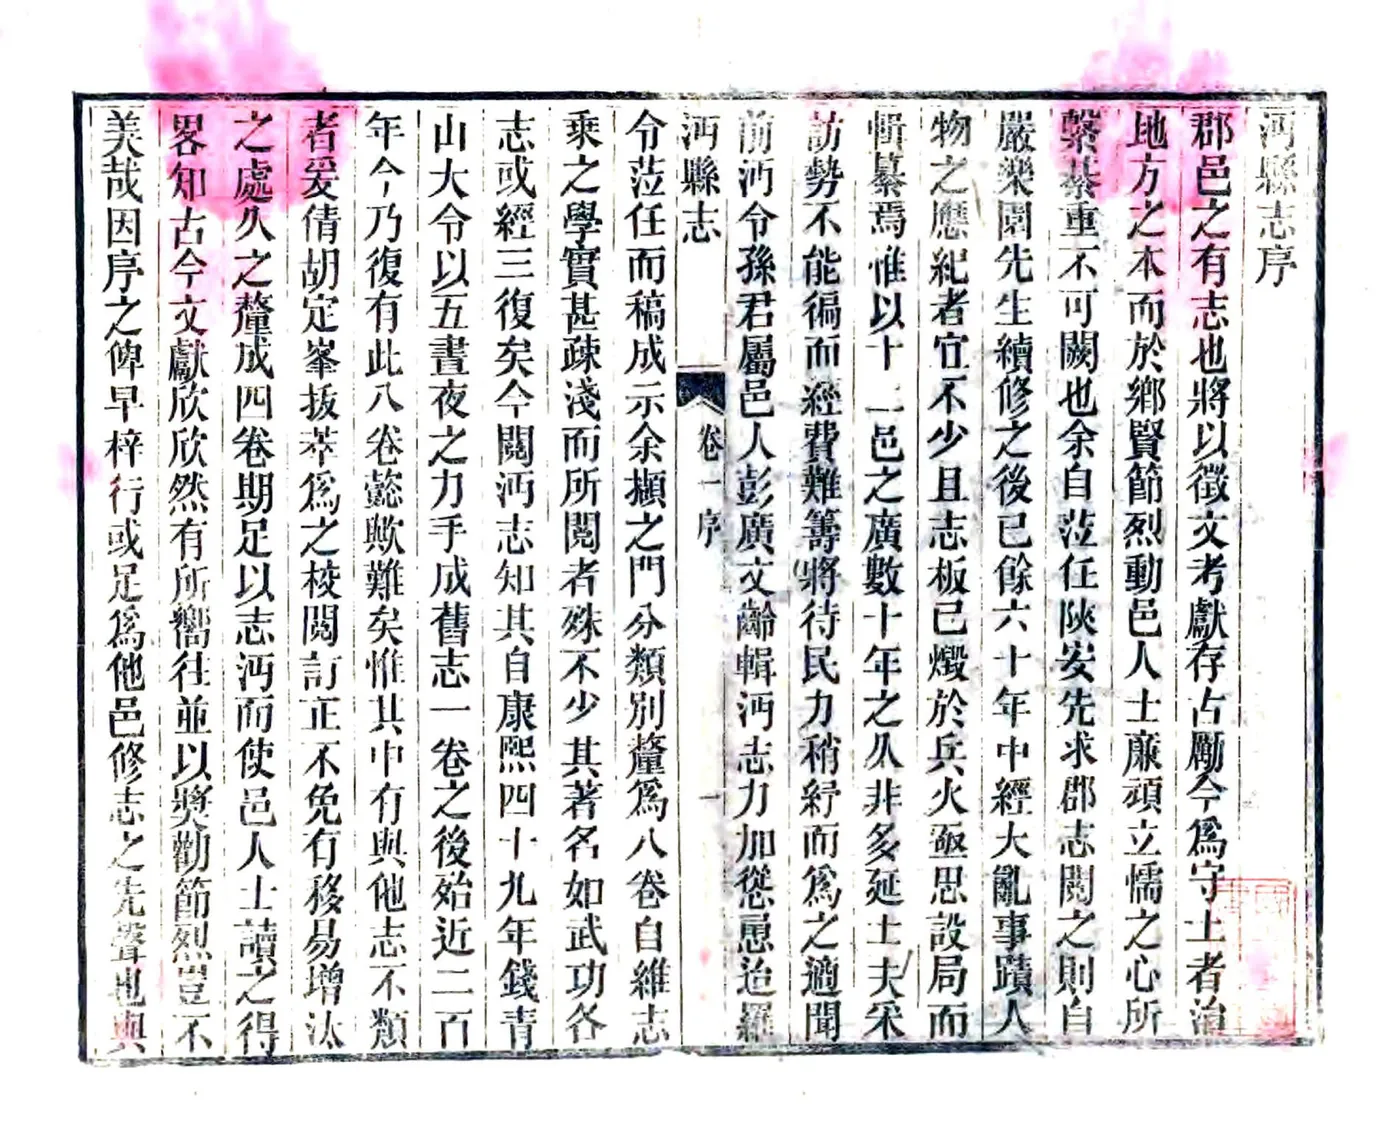 沔縣志序
郡邑之有志也將以徵文考獻存占勵今爲守土者治
地方之本而於鄉賢節烈動邑人士廉頑立懦之心所
繫綦重不可闕也余自蒞任陝安先求郡志閱之則自
嚴樂園先生續修之後已餘六十年中經大亂事蹟人
物之應紀者宜不少且志板已燬於兵火亟思設局而
輯纂焉惟以十一邑之廣數十年之久非多延士夫采
訪勢不能徧而經費難籌將待民力稍紓而爲之適聞
前沔令孫君屬邑人彭廣文齡輯沔志力加慫恿迨羅
沔縣志
卷一序
一
令蒞任而稿成示余擷之門分類別釐爲八卷自維志
乘之學實甚疎淺而所閱者殊不少其著名如武功各
志或經三復矣今閱沔志知其自康熙四十九年錢青
山大令以五晝夜之力手成舊志一卷之後殆近二百
年今乃復有此八卷懿歟難矣惟其中有與他志不類
者爰倩胡定峯拔萃爲之校閱訂正不免有移易增汰
之處久之釐成四卷期足以志沔而使邑人士讀之得
畧知古今文獻欣欣然有所嚮往並以獎勸節烈豈不
美哉因序之俾早梓行或足爲他邑修志之先聲也與